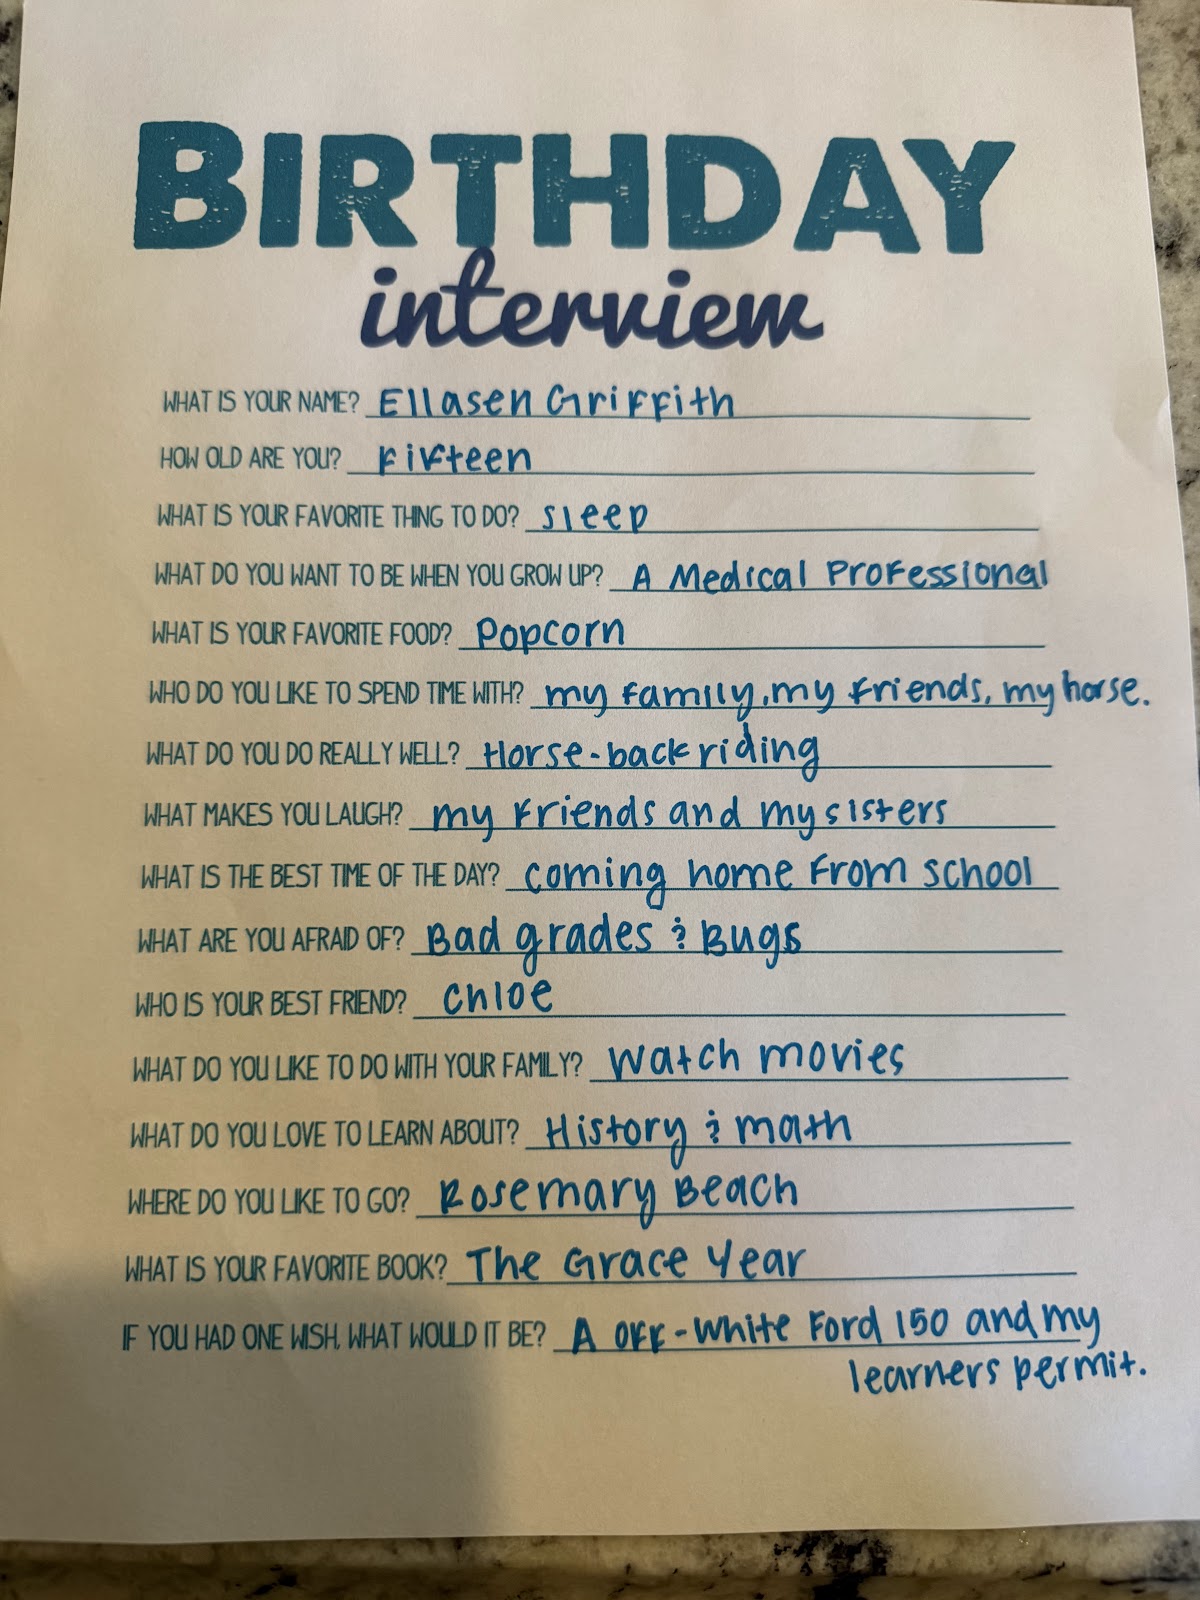 BIRTHDAY
interview
WHAT IS YOUR NAME? Ellasen Griffith
HOW OLD ARE YOU? Fifteen
WHAT IS YOUR FAVORITE THING TO DO? sleep
WHAT DO YOU WANT TO BE WHEN YOU GROW UP? A Medical Professional
WHAT IS YOUR FAVORITE FOOD? Popcorn
WHO DO YOU LIKE TO SPEND TIME WITH? my family, my friends, my horse.
WHAT DO YOU DO REALLY WELL? Horse-back riding
WHAT MAKES YOU LAUGH? my friends and my sisters
WHAT IS THE BEST TIME OF THE DAY? coming home from school
WHAT ARE YOU AFRAID OF? Bad grades & Bugs
WHO IS YOUR BEST FRIEND? Chloe
WHAT DO YOU LIKE TO DO WITH YOUR FAMILY? Watch movies
WHAT DO YOU LOVE TO LEARN ABOUT? History & math
WHERE DO YOU LIKE TO GO? Rosemary Beach
WHAT IS YOUR FAVORITE BOOK? The Grace Year
IF YOU HAD ONE WISH, WHAT WOULD IT BE? A off-white Ford 150 and my
learners permit.